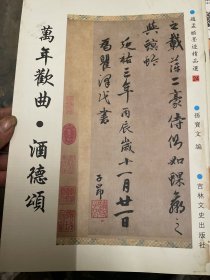 趙孟頫墨迹精品選
孫寶文 編
吉林文史出版社
之載萍二豪侍側如蜾蠃之
與螟蛉
延祐三年丙辰歲十一月廿一日
為瞿澤民書
子昂
萬年歡曲・酒德頌